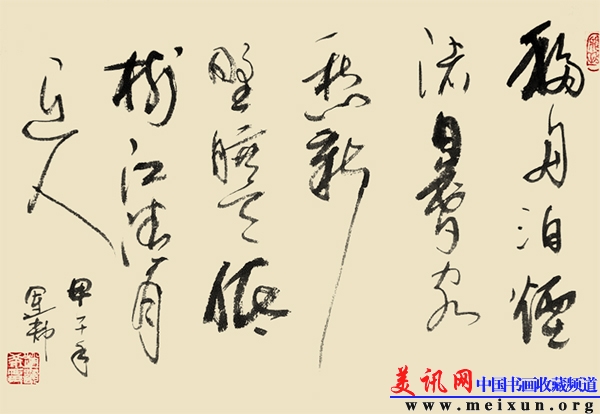 移舟泊煙
渚日暮客
愁新
野曠天低
樹江清月
近人
甲午年
美讯网 中国书画收藏频道
www.meixun.org